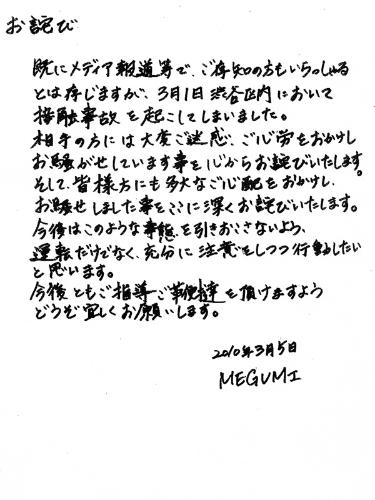 お詫び
既にメディア報道等で、ご存知の方もいらっしゃる
とは存じますが、3月1日渋谷区内において
接触事故を起こしてしまいました。
相手の方には大変ご迷惑、ご心労をおかけし
お騒がせしています事を心からお詫びいたします。
そして、皆様方にも多大なご心配をおかけし、
お騒せしました事をここに深くお詫びいたします。
今後はこのような事態を引きおこさないよう、
運転だけでなく、充分に注意をしつつ行動したい
と思います。
今後ともご指導ご鞭撻を頂けますよう
どうぞ宜しくお願いします。
2010年3月5日
MEGUMI